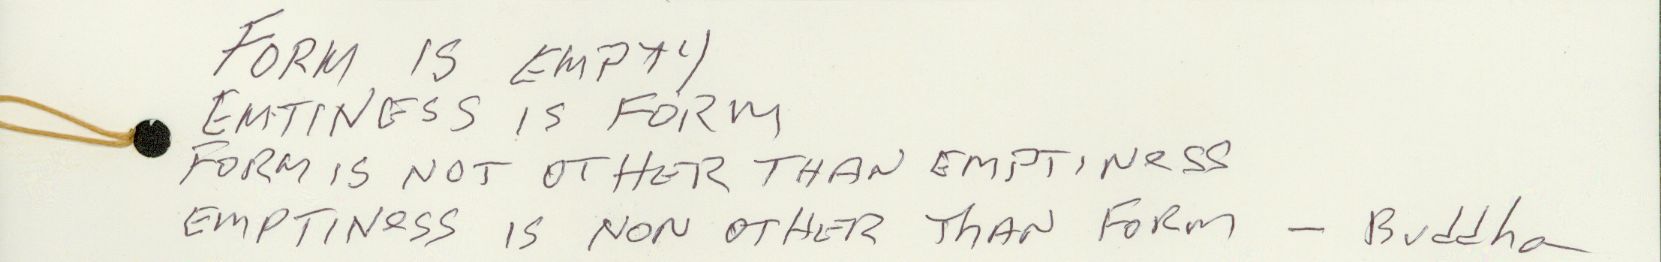 FORM IS EMPTY
EMTINESS IS FORM
FORM IS NOT OTHER THAN EMPTINESS
EMPTINESS IS NON OTHER THAN FORM — Buddha